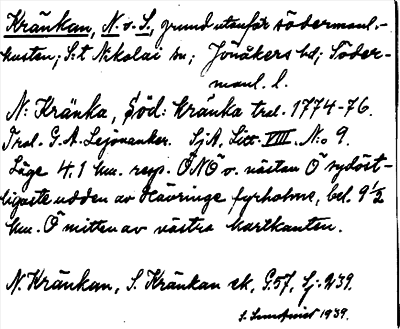 Kränkan, N. o. S., grund utanför södermanl.-
kusten; S:t Nikolai sn; Jönåkers hd; Söder-
manl. l.
N: Kränka, Söd: kränka tral. 1774-76.
Tral. G. A. Lejonanker. SjA, Litt. VIII. N:o 9.
Läge 4,1 km. resp. ÖNÖ o. nästan Ö sydöst-
ligaste udden av Hävringe fyrholme, bel. 9 1/2
km. Ö mitten av västra kartkanten.
N. Kränkan, S. Kränkan ek, G.57, Sj: 239.
S. 1939.